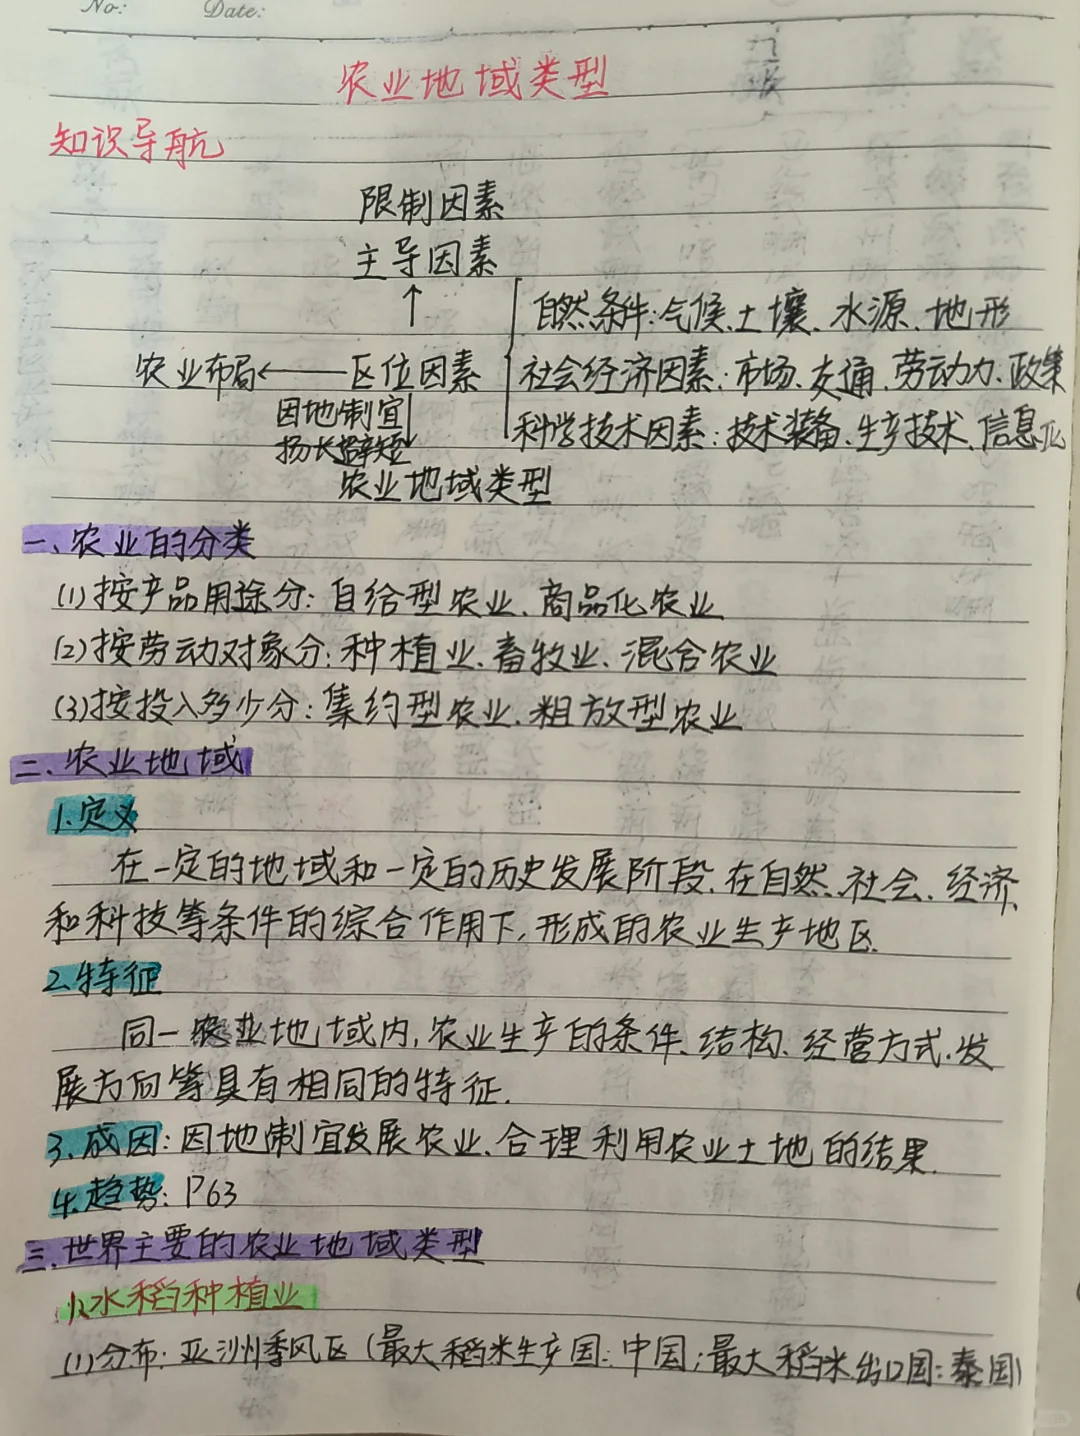 No: Date:
农业地域类型
知识导航
限制因素
主导因素
↑
自然条件:气候、土壤、水源、地形
农业布局←区位因素
社会经济因素:市场、交通、劳动力、政策
因地制宜
扬长避短
科学技术因素:技术装备、生产技术、信息化
农业地域类型
一、农业的分类
(1)按产品用途分:自给型农业、商品化农业
(2)按劳动对象分:种植业、畜牧业、混合农业
(3)按投入多少分:集约型农业、粗放型农业
二、农业地域
1.定义
在一定的地域和一定的历史发展阶段,在自然、社会、经济、
和科技等条件的综合作用下,形成的农业生产地区.
2.特征
同一农业地域内,农业生产的条件、结构、经营方式、发
展方向等具有相同的特征.
3.成因:因地制宜发展农业、合理利用农业土地的结果.
4.趋势:P63
三.世界主要的农业地域类型
1.水稻种植业
(1)分布:亚洲季风区(最大稻米生产国:中国;最大稻米出口国:泰国)